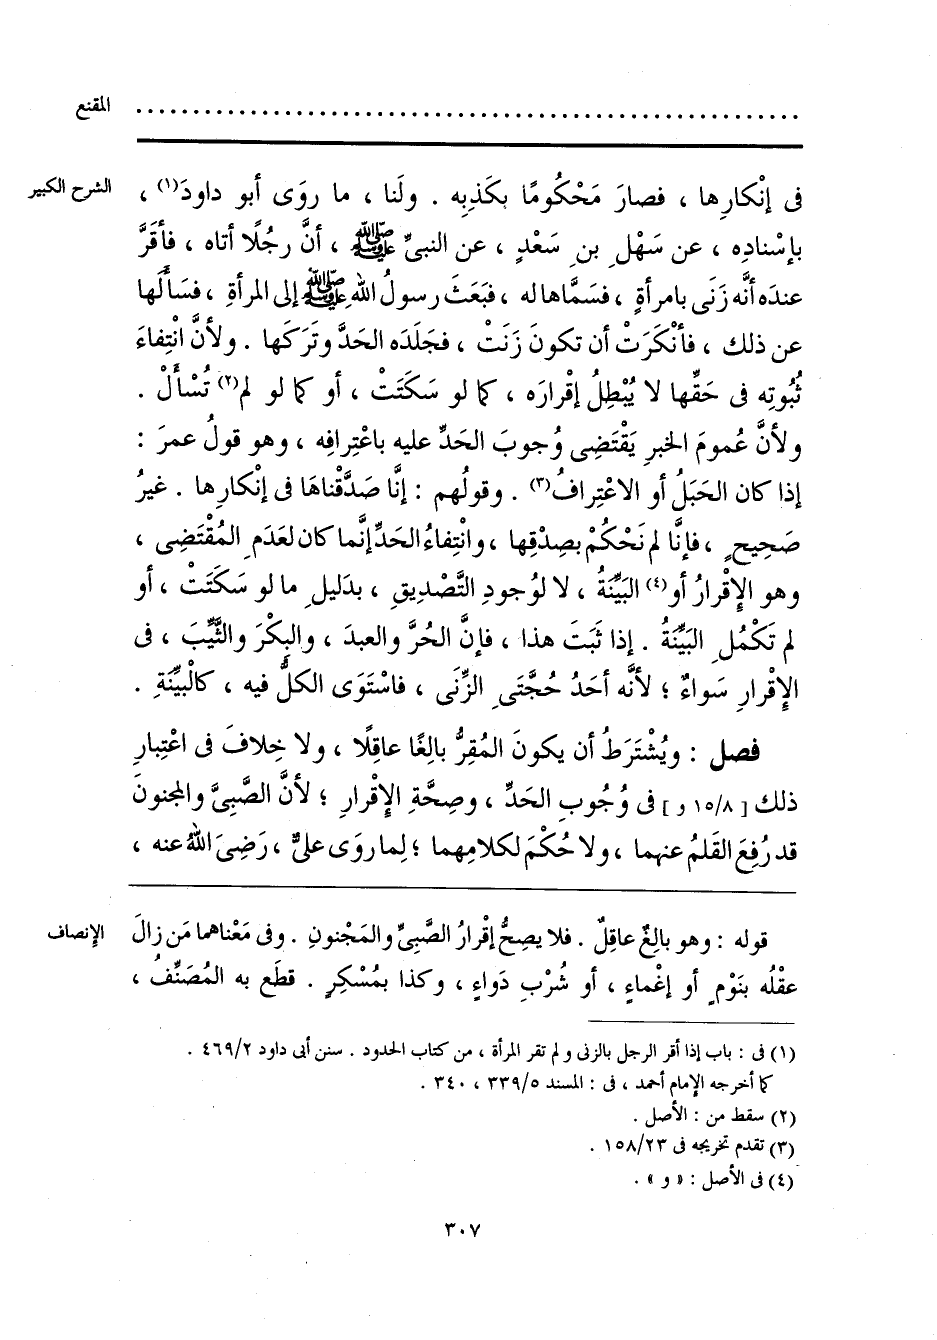 المقنع ..........................................................
الشرح الكبير
فى إنْكارِها ، فصارَ مَحْكُومًا بكَذِبِه . ولَنا ، ما روَى أبو داودَ(١) ،
بإسْنادِه ، عن سَهْلِ بنِ سَعْدٍ ، عن النبىِّ ﷺ ، أنَّ رجُلًا أتاه ، فأقَرَّ
عندَه أنَّه زَنَى بامرأةٍ ، فسَمَّاها له ، فبَعَثَ رسولُ اللهِ ﷺ إلى المرأةِ ، فسَأَلَها
عن ذلك ، فأنْكَرَتْ أن تكونَ زَنَتْ ، فجَلَدَه الحَدَّ وتَرَكَها . ولأنَّ انْتِفاءَ
ثُبُوتِه فى حَقِّها لا يُبْطِلُ إقْرارَه ، كما لو سَكَتَتْ ، أو كما لو لم(٢) تُسْأَلْ .
ولأنَّ عُمومَ الخبرِ يَقْتَضِى وُجوبَ الحَدِّ عليه باعْتِرافِه ، وهو قولُ عمرَ :
إذا كان الحَبَلُ أو الاعْتِرافُ(٣) . وقولُهم : إنَّا صَدَّقْناهَا فى إنْكارِها . غيرُ
صَحِيحٍ ، فإنَّا لم نَحْكُمْ بصِدْقِها ، وانْتِفاءُ الحَدِّ إنَّما كان لعَدَمِ المُقْتَضِى ،
وهو الإِقْرارُ أو(٤) البَيِّنَةُ ، لا لوُجودِ التَّصْدِيقِ ، بدَليلِ ما لو سَكَتَتْ ، أو
لم تَكْمُلِ البَيِّنَةُ . إذا ثَبَتَ هذا ، فإنَّ الحُرَّ والعبدَ ، والبِكْرَ والثَّيِّبَ ، فى
الإِقْرارِ سَواءٌ ؛ لأنَّه أحَدُ حُجَّتَىِ الزِّنَى ، فاسْتَوَى الكلُّ فيه ، كالْبَيِّنَةِ .
فصل : ويُشْتَرَطُ أن يكونَ المُقِرُّ بالِغًا عاقِلًا ، ولا خِلافَ فى اعْتِبارِ
ذلك [ ١٥/٨ و ] فى وُجُوبِ الحَدِّ ، وصِحَّةِ الإِقْرارِ ؛ لأنَّ الصَّبِىَّ والمجنونَ
قد رُفِعَ القَلَمُ عنهما ، ولا حُكْمَ لكَلامِهما ؛ لِما روَى علىٌّ ، رَضِىَ اللهُ عنه ،
الإنصاف
قوله : وهو بالِغٌ عاقِلٌ . فلا يصِحُّ إقْرارُ الصَّبِىِّ والمَجْنونِ . وفى مَعْناهما مَن زالَ
عقْلُه بنَوْمٍ أو إغْماءٍ ، أو شُرْبِ دَواءٍ ، وكذا بمُسْكِرٍ . قطَع به المُصَنِّفُ ،
(١) فى : باب إذا أقر الرجل بالزنى ولم تقر المرأة ، من كتاب الحدود . سنن أبى داود ٤٦٩/٢ .
كما أخرجه الإمام أحمد ، فى : المسند ٣٣٩/٥ ، ٣٤٠ .
(٢) سقط من : الأصل .
(٣) تقدم تخريجه فى ١٥٨/٢٣ .
(٤) فى الأصل : « و » .
٣٠٧